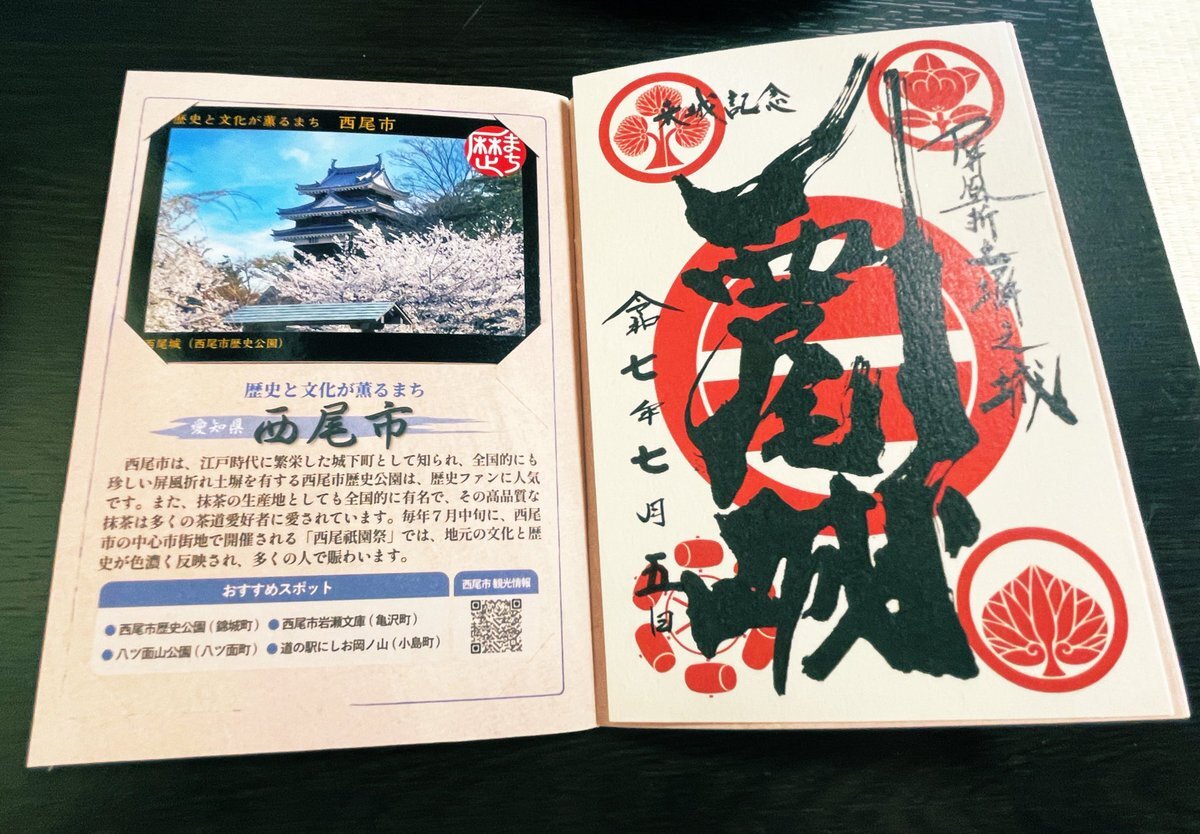 歴史と文化が薫るまち 西尾市
歴まち
西尾城（西尾市歴史公園）
歴史と文化が薫るまち
愛知県 西尾市
西尾市は、江戸時代に繁栄した城下町として知られ、全国的にも
珍しい屏風折れ土塀を有する西尾市歴史公園は、歴史ファンに人気
です。また、抹茶の生産地としても全国的に有名で、その高品質な
抹茶は多くの茶道愛好者に愛されています。毎年７月中旬に、西尾
市の中心市街地で開催される「西尾祇園祭」では、地元の文化と歴
史が色濃く反映され、多くの人で賑わいます。
おすすめスポット
西尾市 観光情報
●西尾市歴史公園（錦城町） ●西尾市岩瀬文庫（亀沢町）
●八ツ面山公園（八ツ面町） ●道の駅にしお岡ノ山（小島町）
屏風折土塀之城
来城記念
西尾城
令和七年七月五日